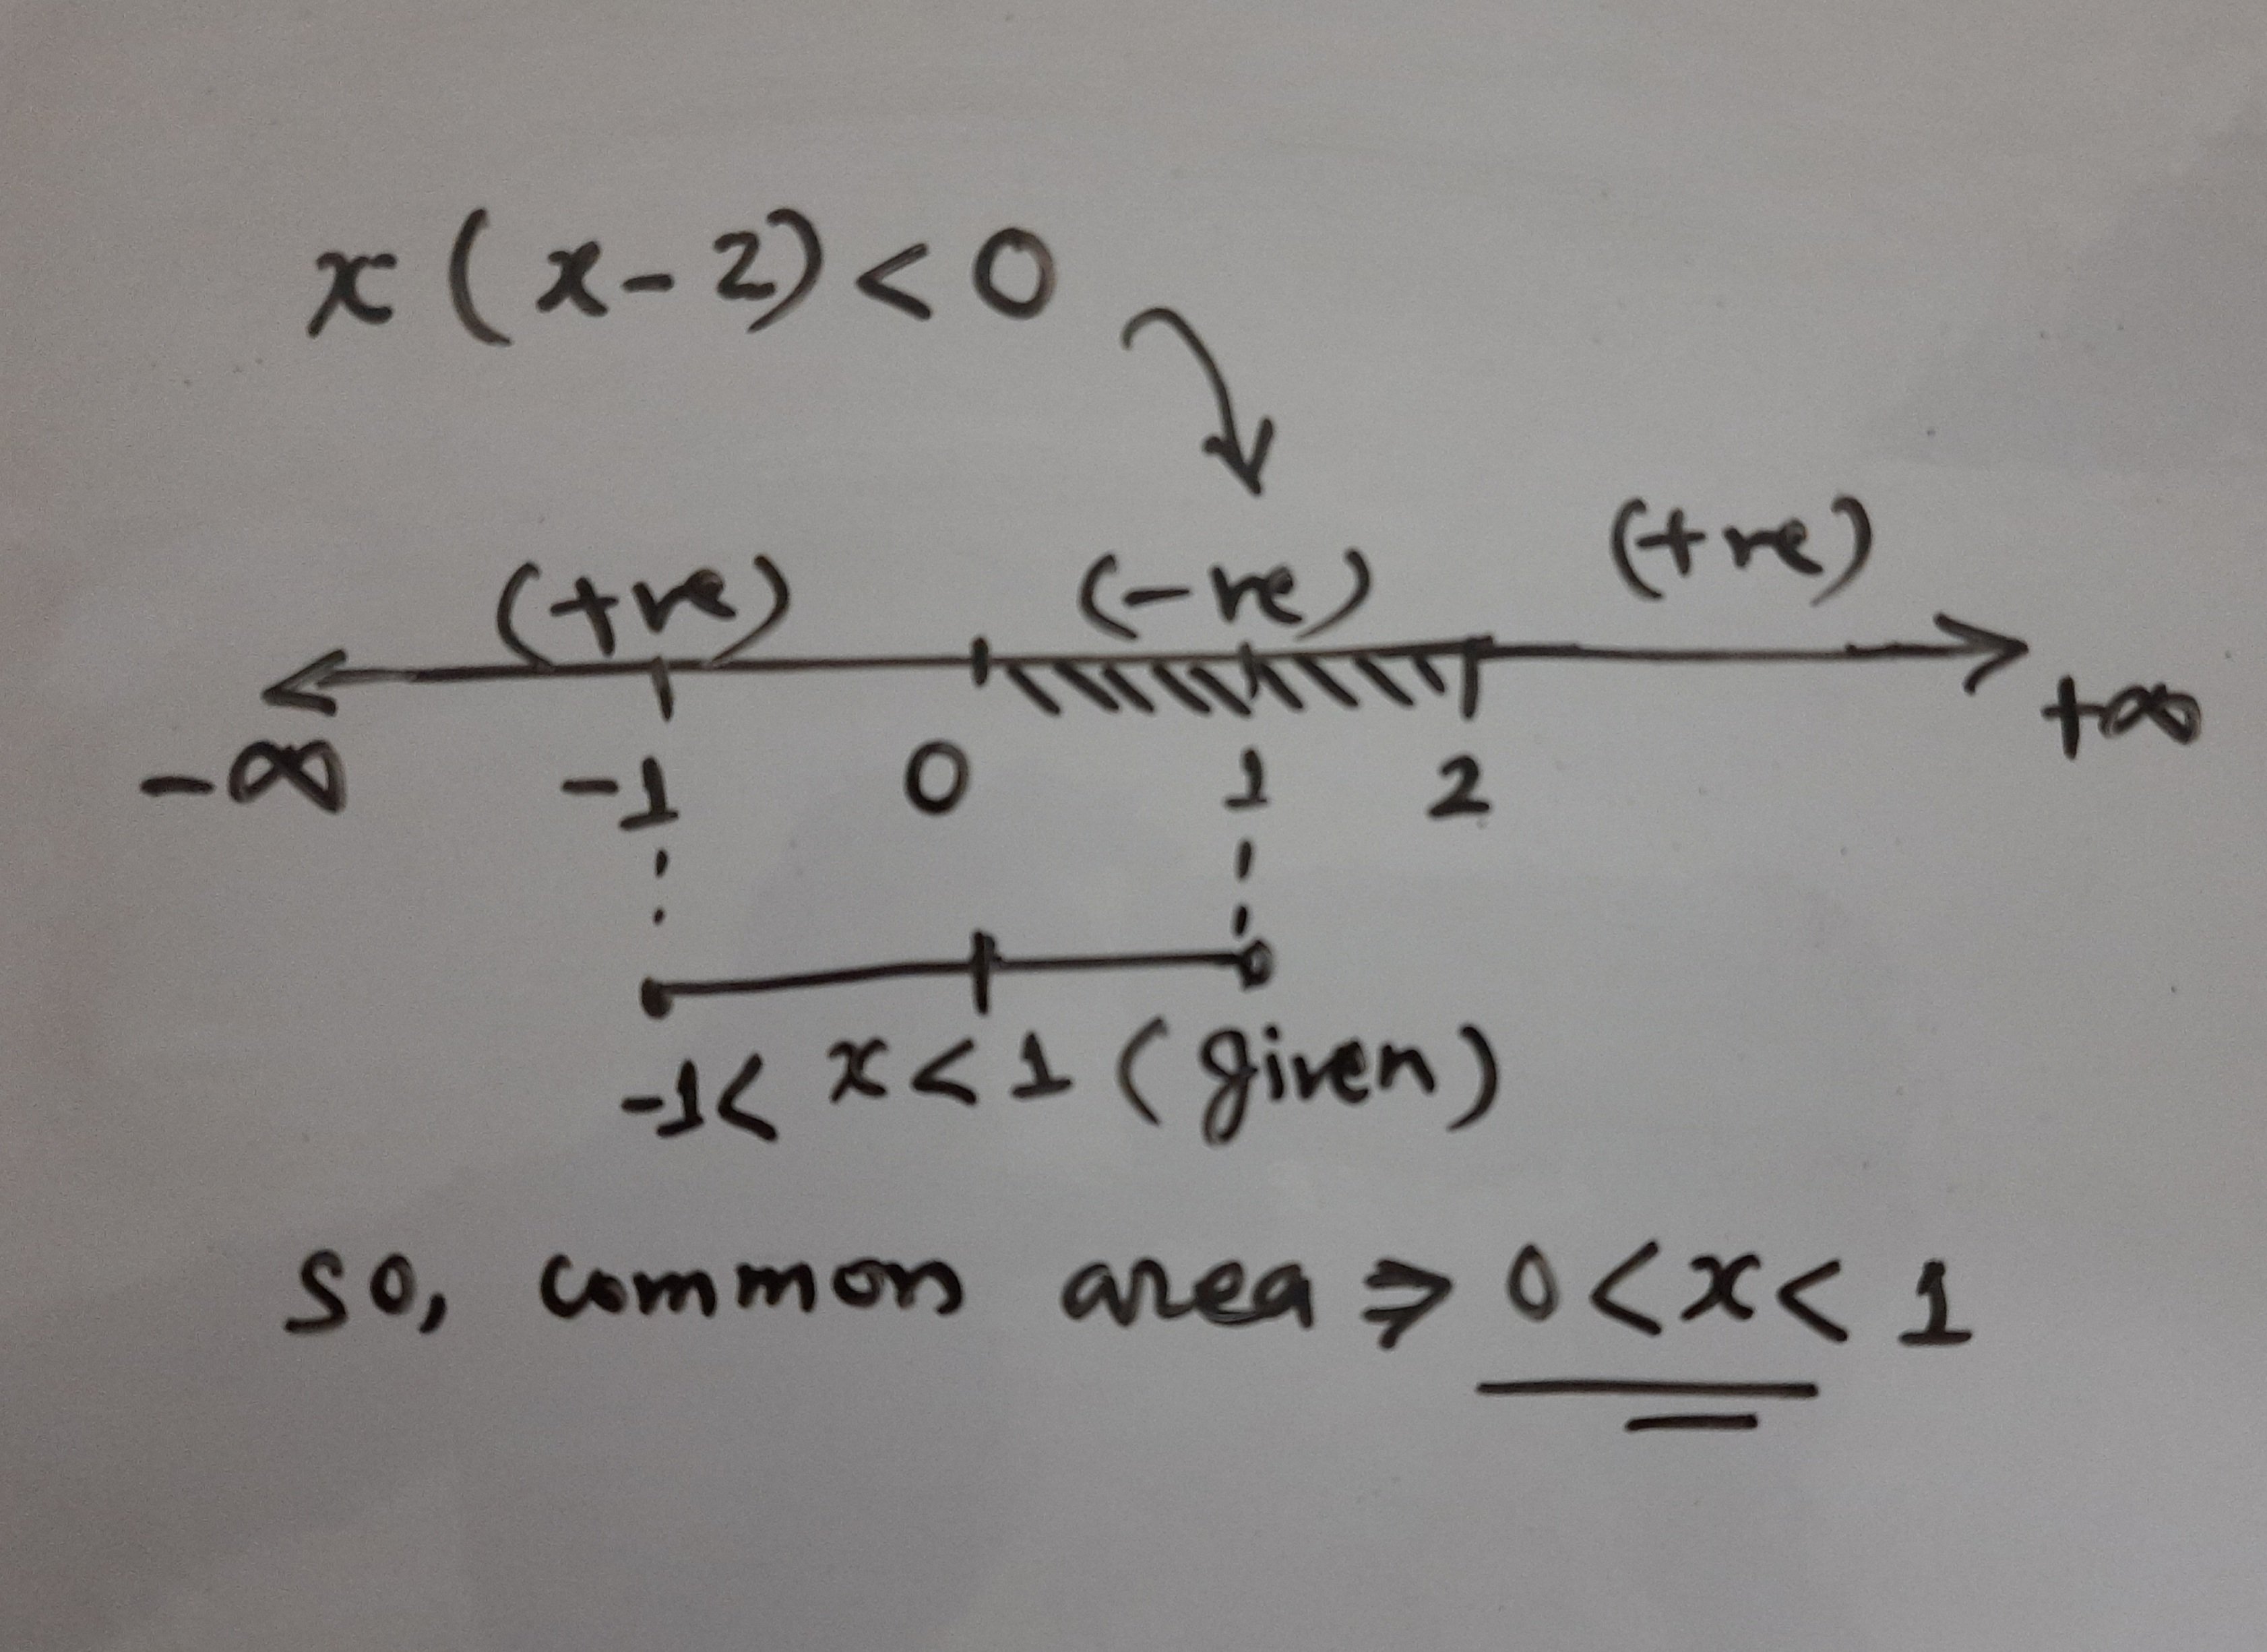 x(x-2)<0
(+ve) (-ve) (+ve)
-∞ -1 0 1 2 +∞
-1< x<1 (given)
so, common area ⇒ 0<x<1